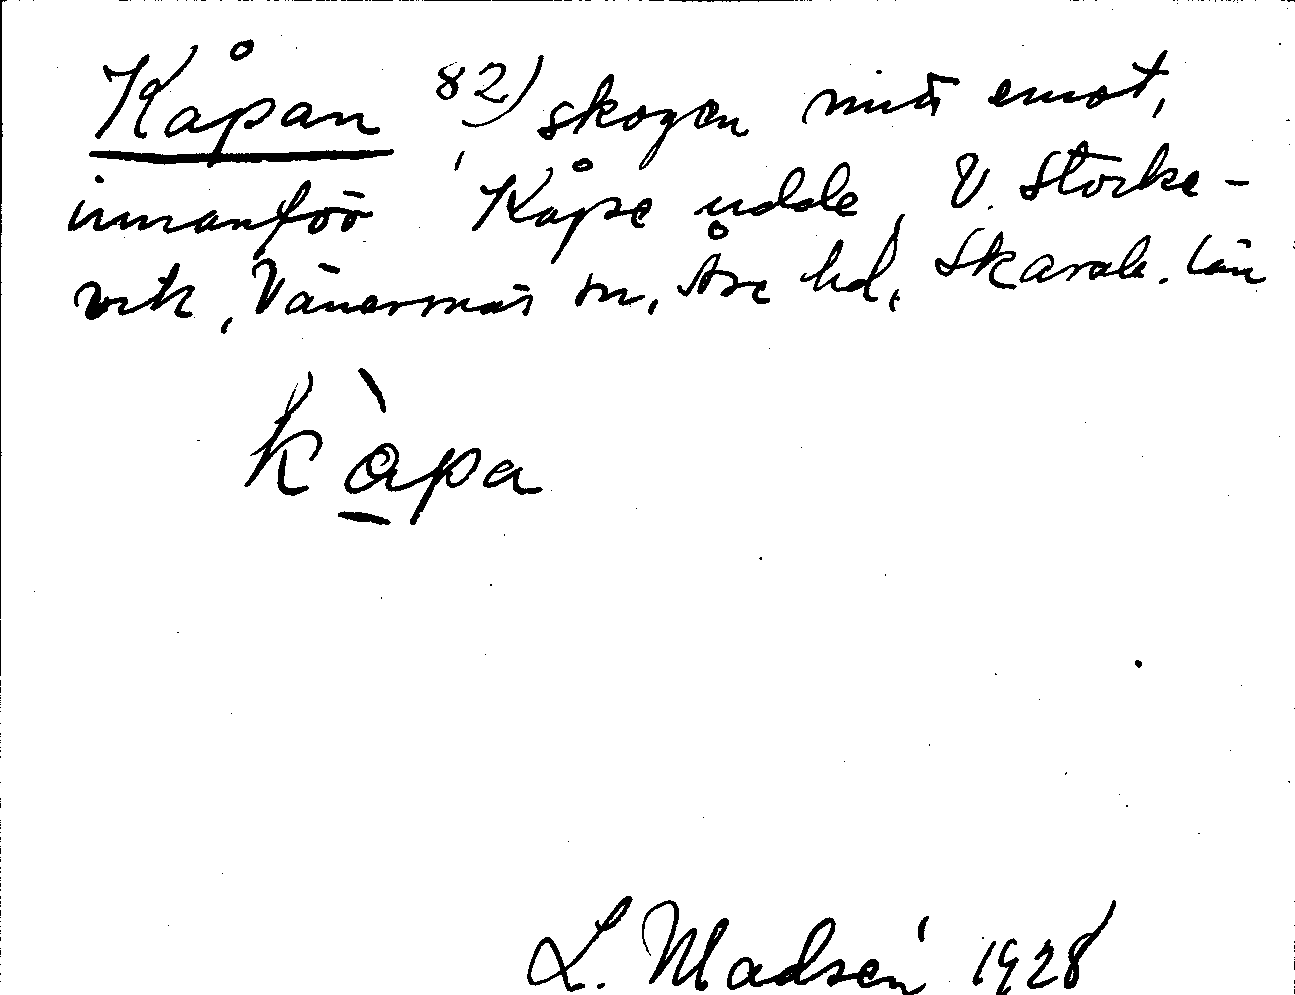 Kåpan 82), skogen mitt emot,
innanför Kåpe udde, V. Storke-
vik, Vänersnäs sn, Åse hd, Skarab. län
kàpa
L. Madsén 1928